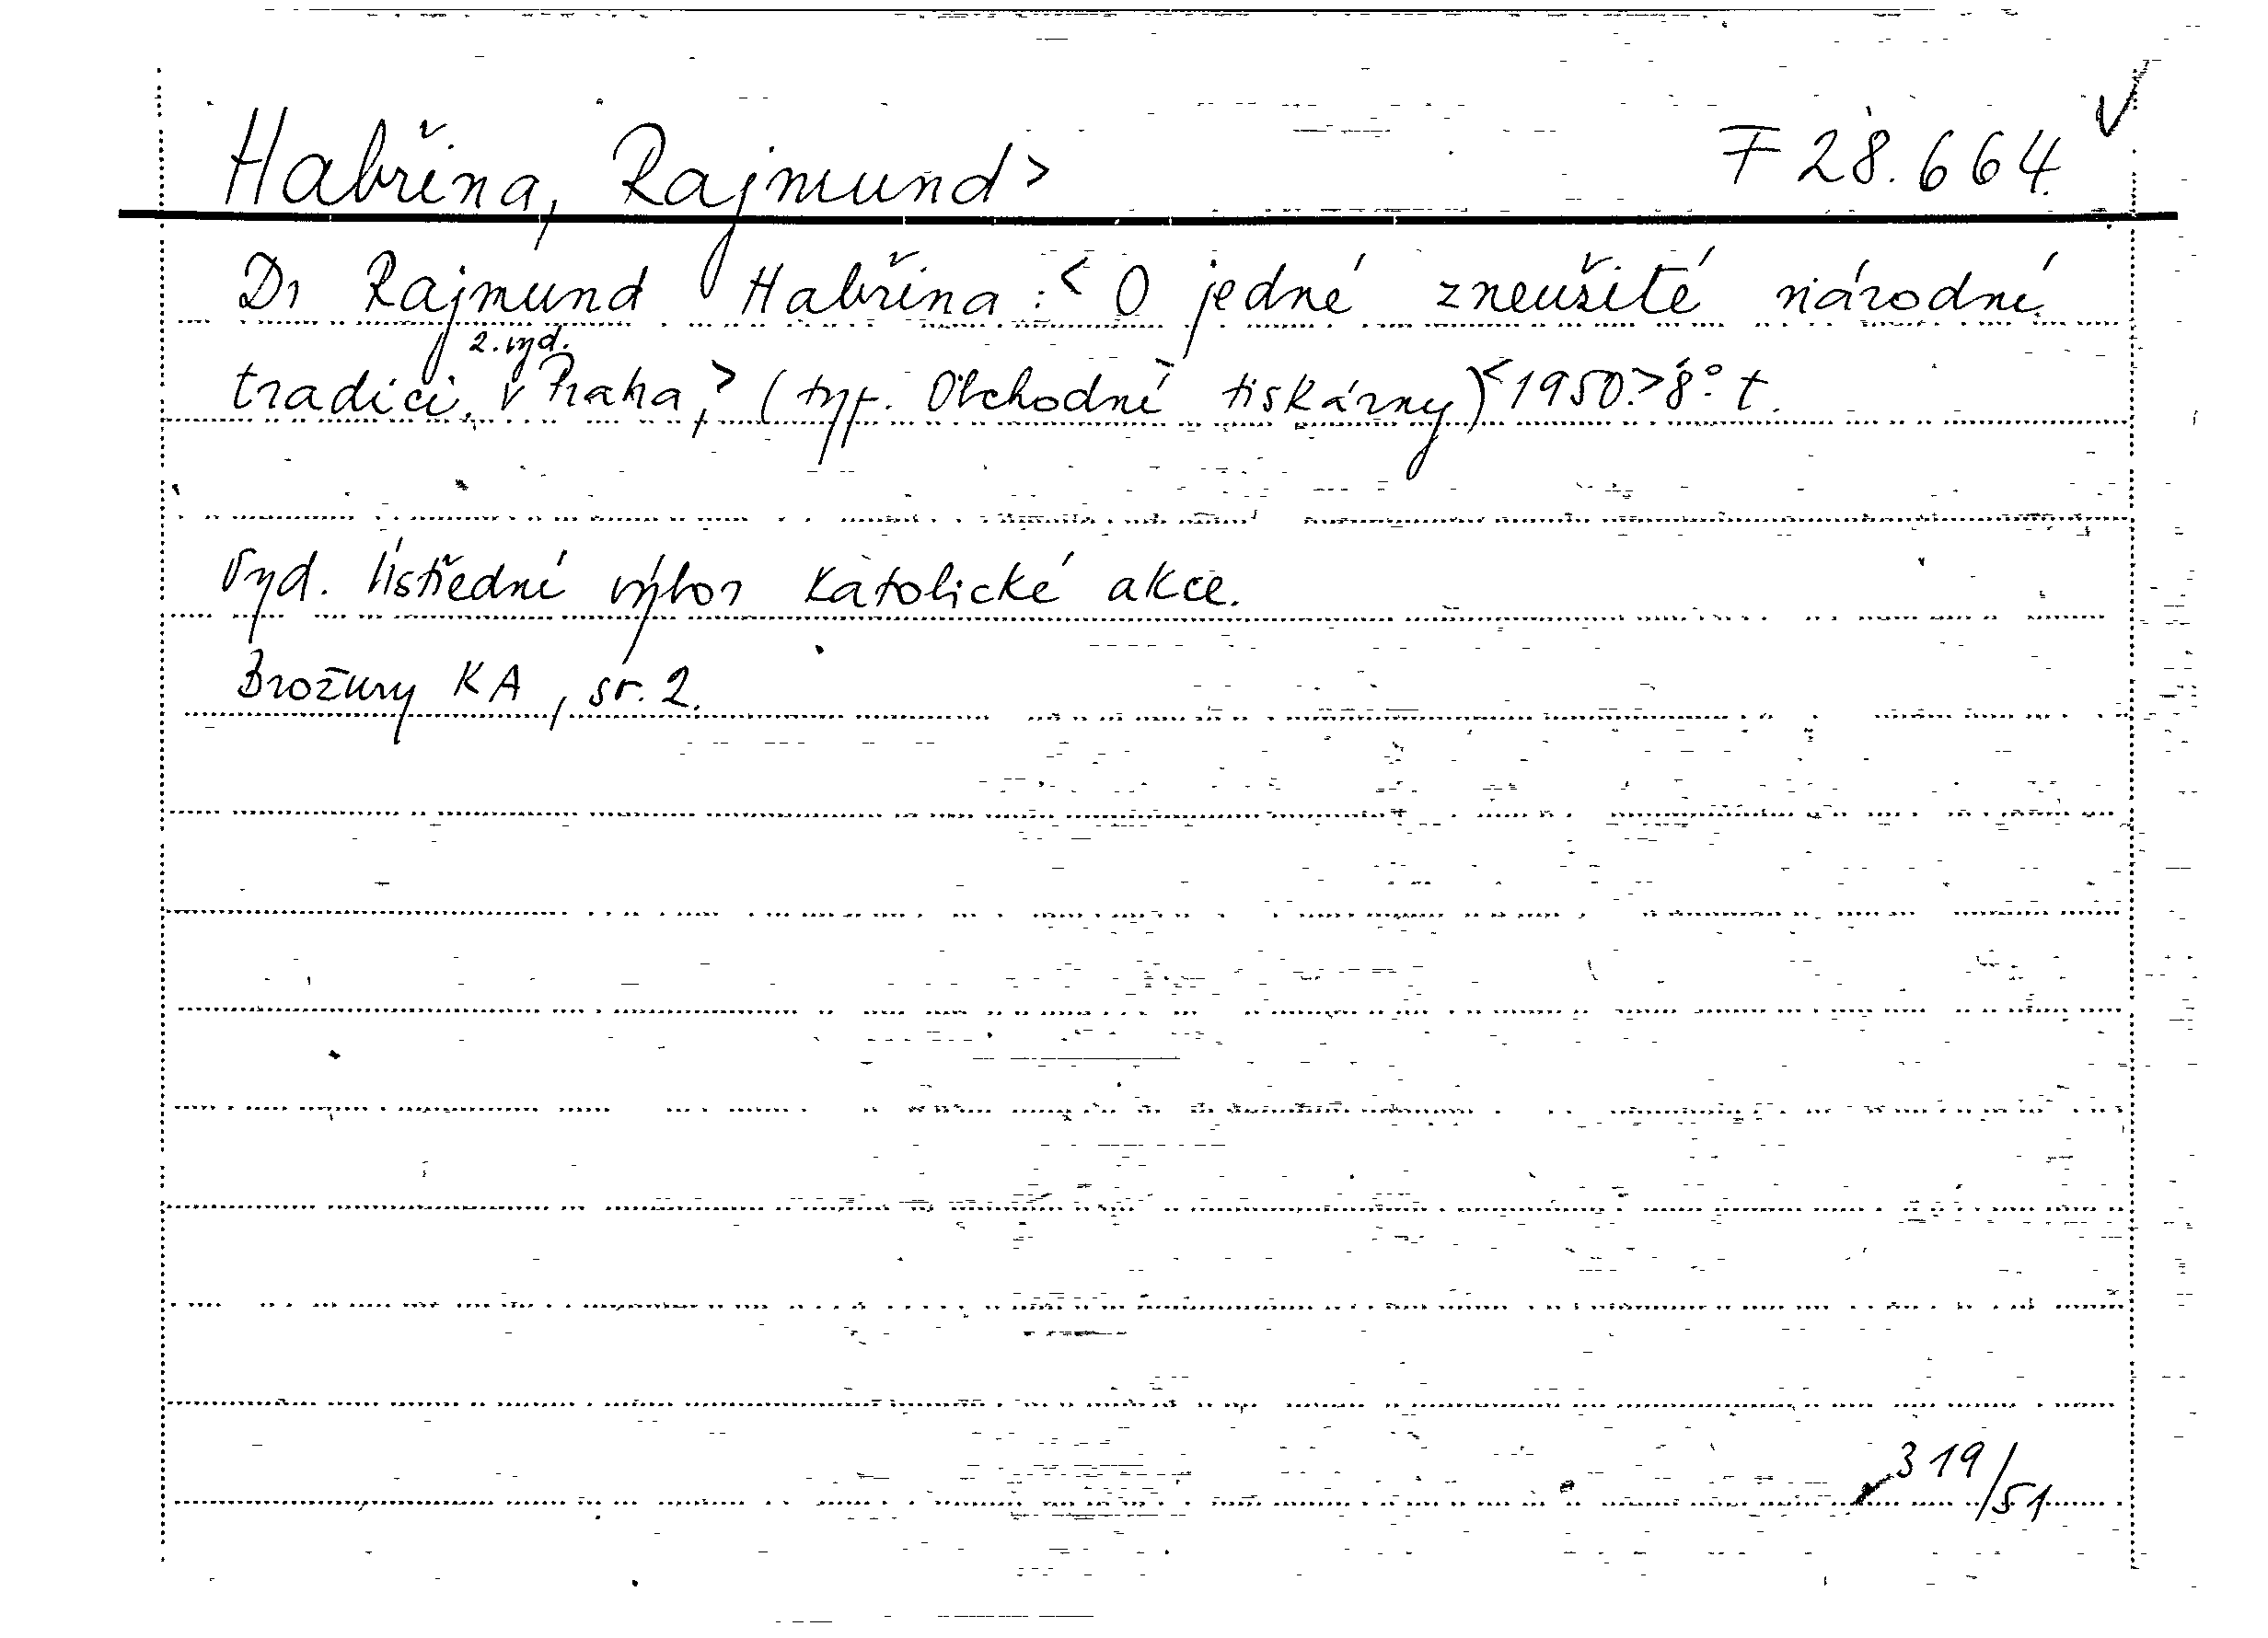 Habřina, Rajmund> F 28.664.
Dr Rajmund Habřina :< O jedné zneužité národní
2. vyd.
tradici. v Praha,> (typ. Obchodní tiskárny)<1950.>8° t.
Vyd. Ústřední výbor Katolické akce.
Brožury KA, sv. 2.
319/51